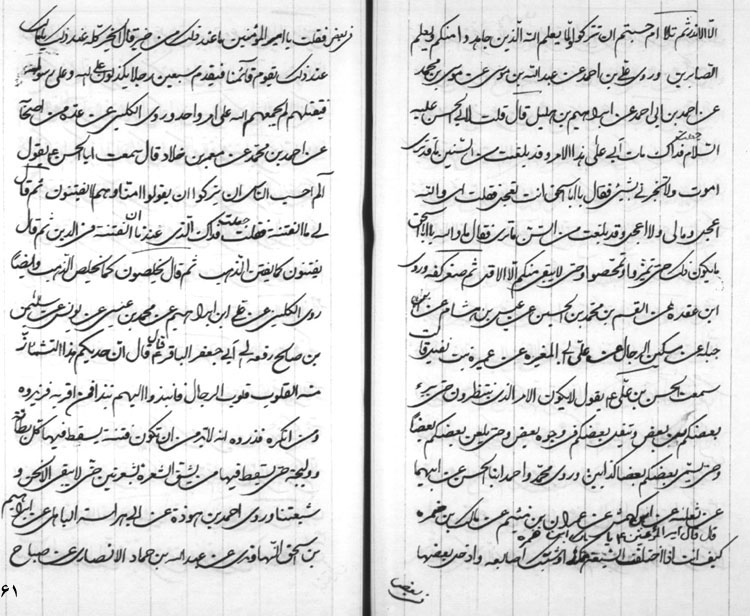 الّا الاندر ثم تلا ام حسبتم ان تتركوا ولمّا يعلم الله الّذين جاهدوا منكم ويعلم
الصّابرين وروى علىّ بن احمد عن عبدالله بن موسى عن موسى بن محمد
عن احمد بن ابى احمد عن ابراهيم بن هليل قال قلت لابى الحسن عليه
السلام جعلت فداك مات أبى على هذا الامر وقد بلغت من السّنين ما قد ترى
اموت ولا تخبرنى بشىء فقال يا ابا اسحق انت تعجل فقلت اى والله
اعجل ومالى ولا اعجل وقد بلغت من السّن ما ترى فقال اما والله يا ابا اسحق
مايكون ذلك حتى تميّزوا وتمحّصوا وحتى لا يبقى منكم الّا الاقل ثم صغر كفه وروى
ابن عقدة عن القسم بن محمد بن الحسين عن عبيس بن هشام عن عبدالله بن
جبلة عن مسكين الرحال عن على بن ابى المغيرة عن عميرة بنت نفيل قالت
سمعت الحسن بن علّى ع يقول لا يكون الامر الذى تنتظرون حتى يبرء
بعضكم من بعض ويتفل بعضكم فى وجوه بعض وحتى يلعن بعضكم بعضا
وحتى يسمّى بعضكم بعضا كذابين وروى محمد واحمد ابنا الحسن عن ابيهما
عن ثعلبة عن ابى كهمس عن عمران بن ميثم عن مالك بن ضمرة
قال قال امير المؤمنين ع يا مالك بن ضمرة
كيف انت اذا اختلف الشيعة هكذا وشبك اصابعه وادخل بعضها
فى بعض
فى بعض فقلت يا امير المؤمنين ما عند ذلك من خير قال الخير كلّه عند ذلك يا مالك
عند ذلك يقوم قائمنا فيقدم سبعين رجلا يكذبون على الله وعلى رسوله
فيقتلهم ثم يجمعهم الله على امر واحد وروى الكلينى عن عدة من اصحابنا
عن احمد بن محمد عن معمر بن خلاد قال سمعت ابا الحسن ع يقول
الم احسب الناس ان يتركوا ان يقولوا امنّا وهم لا يفتنون ثم قال
لى ما الفتنة فقلت جعلت فداك الّذى عندنا ان الفتنة فى الدين ثم قال
يفتنون كما يفتن الذهب ثم قال يخلصون كما يخلص الذهب وايضاً
روى الكلينى عن على بن ابراهيم عن محمد بن عيسى عن يونس عن سليمن
بن صالح رفعه الى أبى جعفر الباقر ع قال قال ان حديثكم هذا لتشمأزّ
منه القلوب قلوب الرجال فانبذوا اليهم نبذا فمن اقر به فزيدوه
ومن انكره فذروه انه لابد من ان تكون فتنة يسقط فيها كل بطانة
ووليجة حتى يسقط فيها من يشق الشعرة بشعرتين حتى لا يبقى الّا نحن و
شيعتنا وروى احمد بن هوذة عن ابى هراسة الباهلى عن ابراهيم
بن اسحق النّهاوندى عن عبدالله بن حماد الانصارى عن صباح
٦١